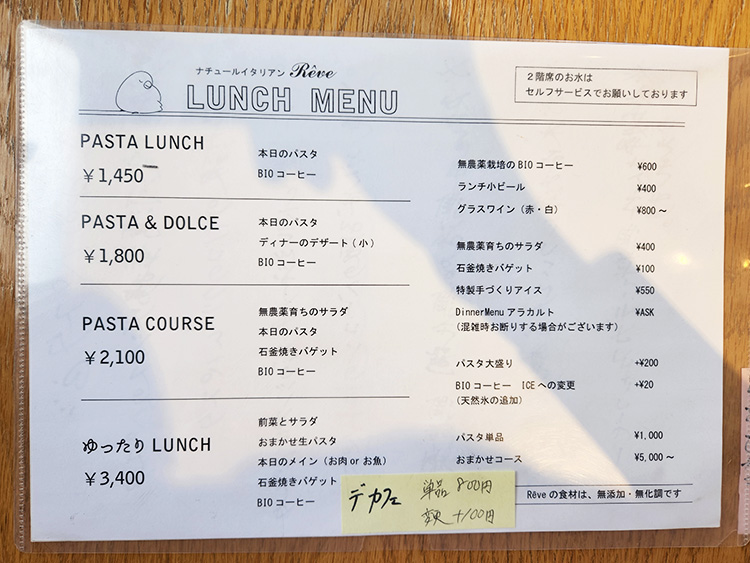 ナチュールイタリアン Rêve
LUNCH MENU
2階席のお水は
セルフサービスでお願いしております
PASTA LUNCH
¥1,450
本日のパスタ
BIOコーヒー
PASTA & DOLCE
¥1,800
本日のパスタ
ディナーのデザート(小)
BIOコーヒー
PASTA COURSE
¥2,100
無農薬育ちのサラダ
本日のパスタ
石釜焼きバゲット
BIOコーヒー
ゆったり LUNCH
¥3,400
前菜とサラダ
おまかせ生パスタ
本日のメイン(お肉 or お魚)
石釜焼きバゲット
BIOコーヒー
無農薬栽培のBIOコーヒー ¥600
ランチ小ビール ¥400
グラスワイン(赤・白) ¥800～
無農薬育ちのサラダ ¥400
石釜焼きバゲット ¥100
特製手づくりアイス ¥550
DinnerMenu アラカルト ¥ASK
(混雑時お断りする場合がございます)
パスタ大盛り +¥200
BIOコーヒー ICEへの変更 +¥20
(天然氷の追加)
パスタ単品 ¥1,000
おまかせコース ¥5,000～
デカフェ 単品 800円
変更 +100円
Rêveの食材は、無添加・無化調です